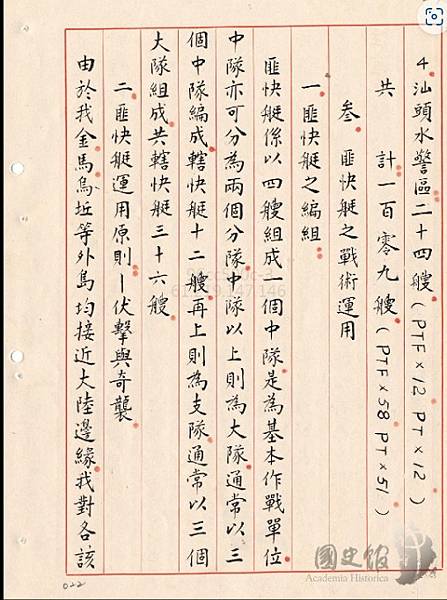 4 汕頭水警區二十四艘(PTF×12 PT×12)
共計一百零九艘(PTF×58 PT×51)
叁 匪快艇之戰術運用
一 匪快艇之編組
匪快艇係以四艘組成一個中隊是為基本作戰單位
中隊亦可分為兩個分隊中隊以上則為大隊通常以三
個中隊編成轄快艇十二艘再上則為支隊通常以三個
大隊組成共轄快艇三十六艘
二 匪快艇運用原則—伏擊與奇襲
由於我金馬烏坵等外島均接近大陸邊緣我對各該
022
國史館
Academia Historica